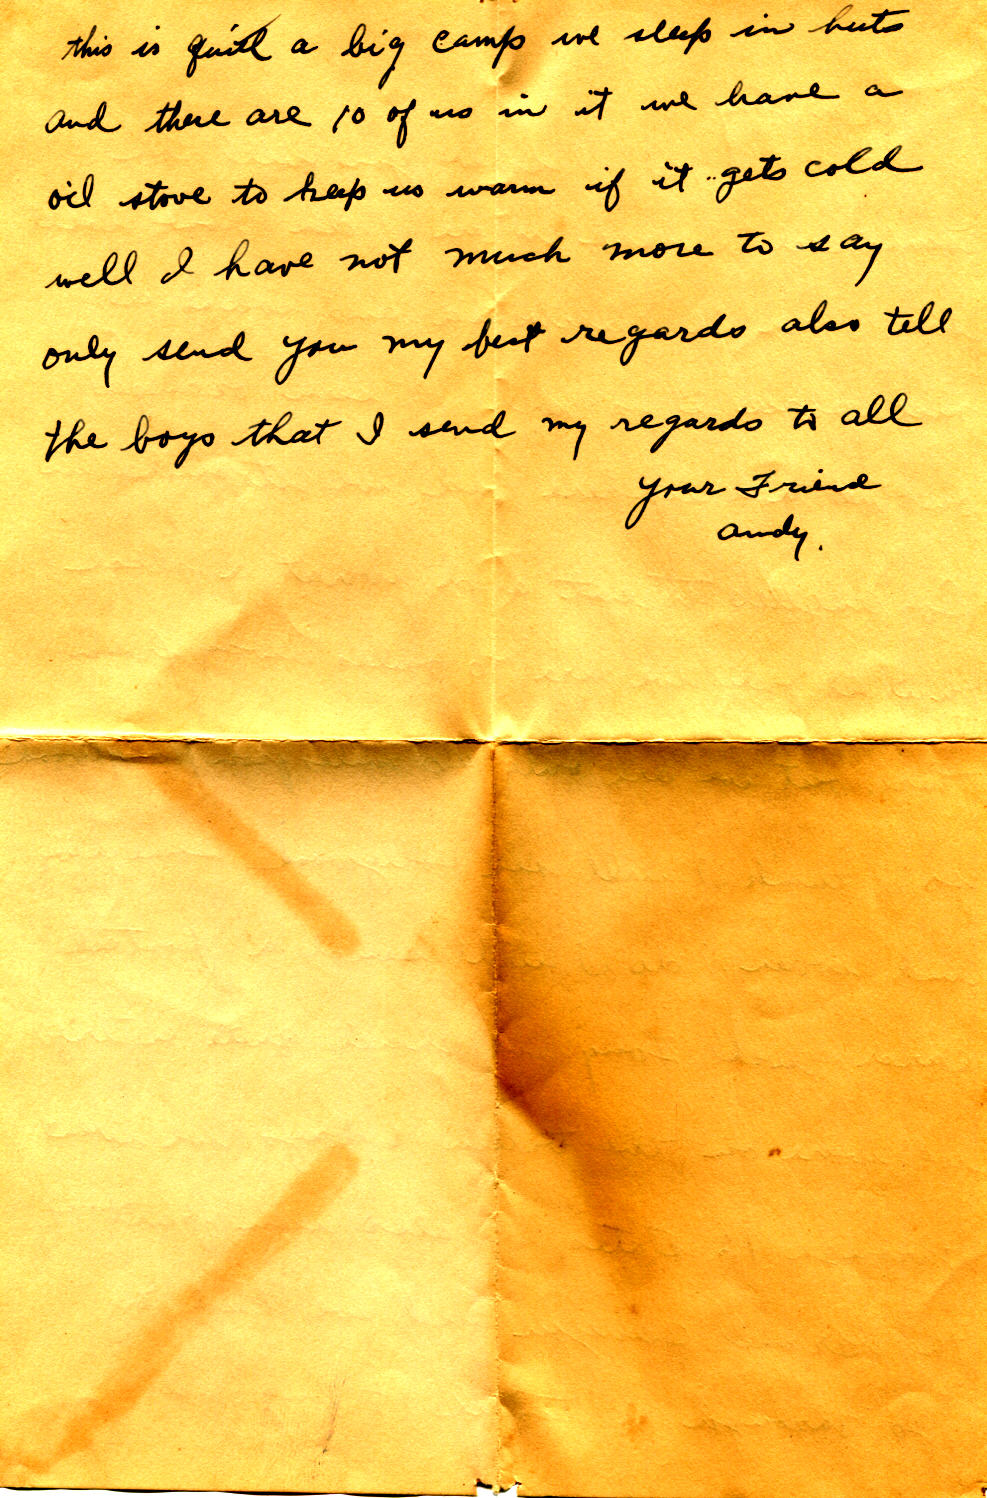 this is quite a big camp we sleep in huts
and there are 10 of us in it we have a
oil stove to keep us warm if it gets cold
well I have not much more to say
only send you my best regards also tell
the boys that I send my regards to all
your Friend
andy.